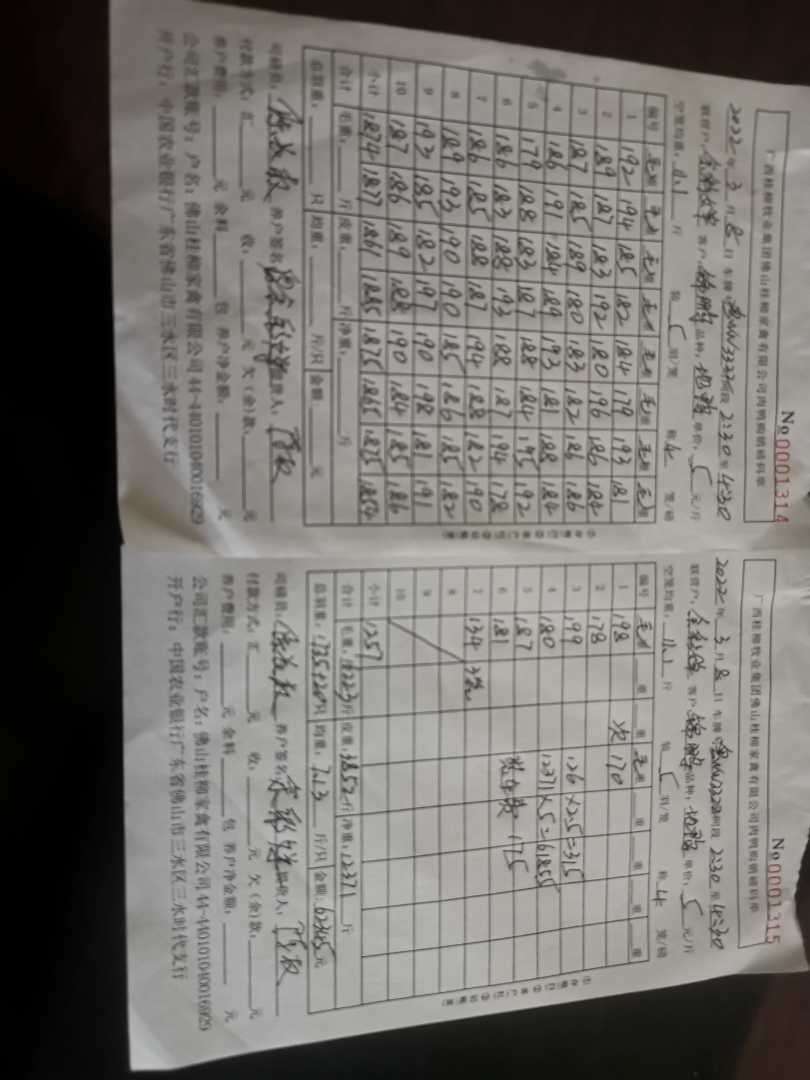 No 0001314
广西桂柳牧业集团佛山桂柳家禽有限公司肉鸭购销磅码单
2022年 3 月 8 日 车牌: 时段 2:30 至 4:30
客户: 品种: 单价: 5 元/斤
空笼均重: 11.1 斤 装 5 羽/笼 称 4 笼/磅
编号 毛重 毛重 毛重 毛重 毛重 毛重 毛重 毛重
1 192 194 185 182 184 179 193 181
2 189 187 183 192 180 196 186 184
3 187 185 189 180 183 182 186 186
4 186 191 184 189 193 181 188 184
5 179 188 183 187 188 184 195 192
6 186 183 188 193 188 187 194 178
7 186 185 188 187 194 188 182 190
8 189 193 190 190 185 186 185 182
9 193 185 182 197 190 198 181 191
10 187 186 189 188 190 184 185 186
小计 1874 1877 1861 1885 1875 1865 1875 1854
合计 毛重: 斤 皮重: 斤 净重: 斤
只 均重: 斤/只 金额 元
司磅员: 养户签名
付款方式:汇 元 收: 元 欠(余)款: 元
养户费用: 元 余料 包 养户净金额: 元
公司汇款账号:户名:佛山桂柳家禽有限公司 44-440101040016929
开户行:中国农业银行广东省佛山市三水区三水时代支行
No 0001315
广西桂柳牧业集团佛山桂柳家禽有限公司肉鸭购销磅码单
2022年 3 月 8 日 车牌: 时段 2:30 至 4:30
客户: 品种: 单价: 5 元/斤
空笼均重: 11.1 斤 装 5 羽/笼 称 4 笼/磅
编号 毛重 重 重 毛重 重 重 重 重
1 198 次 170
2 178
3 199 126×2.5=315
4 180 12371×5=61855
5 187 175
6 181
7 134 3笼
8
9
10
小计 1257
合计 毛重: 16223 斤 皮重: 3852 斤 净重: 12371 斤
只 均重: 7.13 斤/只 金额: 62345 元
司磅员: 养户签名
付款方式:汇 元 收: 元 欠(余)款: 元
养户费用: 元 余料 包 养户净金额: 元
公司汇款账号:户名:佛山桂柳家禽有限公司 44-440101040016929
开户行:中国农业银行广东省佛山市三水区三水时代支行